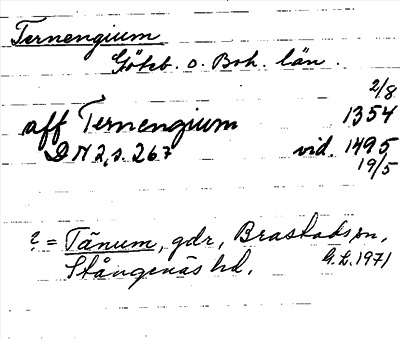 Ternengium
Göteb. o. Boh. län.
2/8
aff Ternengium 1354
DN 2, s. 267 vid. 1495
19/5
? = Tänum, gdr, Brastads sn,
Stångenäs hd. G.L. 1971